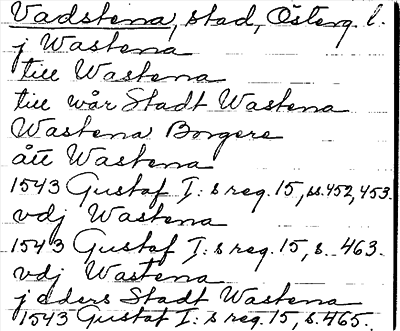 Vadstena, stad, Österg. l.
j Wastena
till Wastena
till wår Stadt Wastena
Wastena Borgere
ått Wastena
1543 Gustaf I:s reg. 15, ss. 452, 453.
vdj Wastena
1543 Gustaf I:s reg. 15, s. 463.
vdj Wastena
j eders Stadt Wastena
1543 Gustaf I:s reg. 15, s. 465.